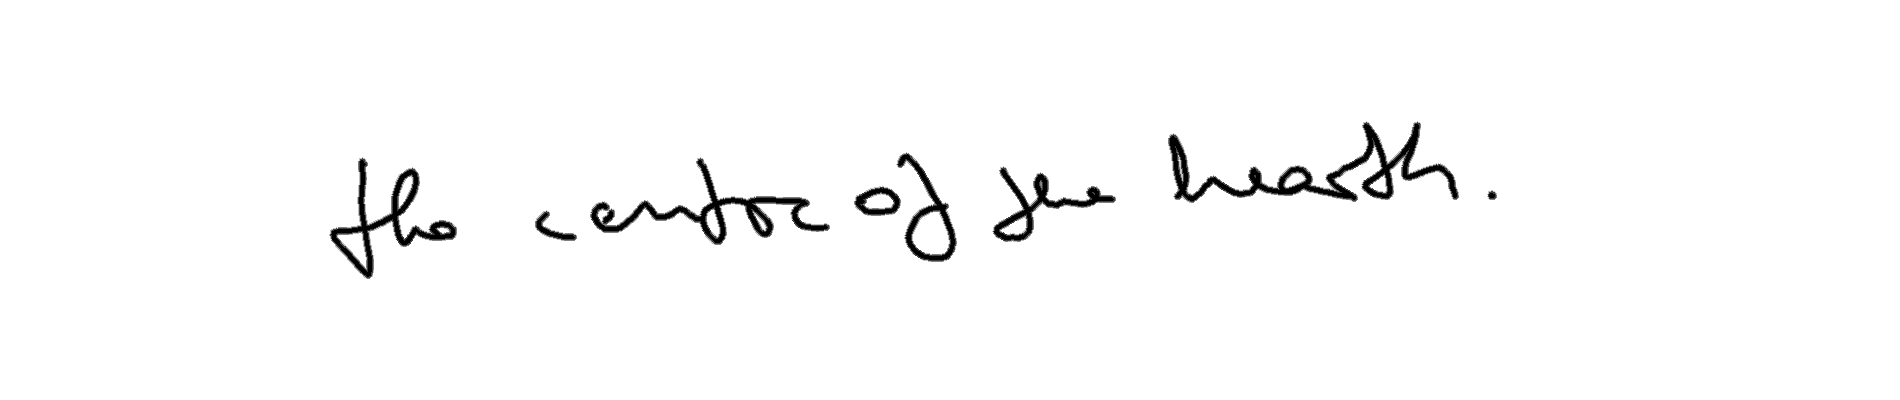 the centre of the hearth.